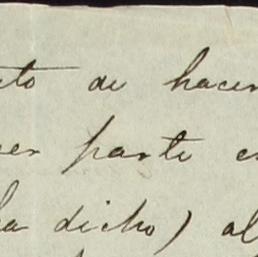 to de hacer
er parte e
ha dicho) al